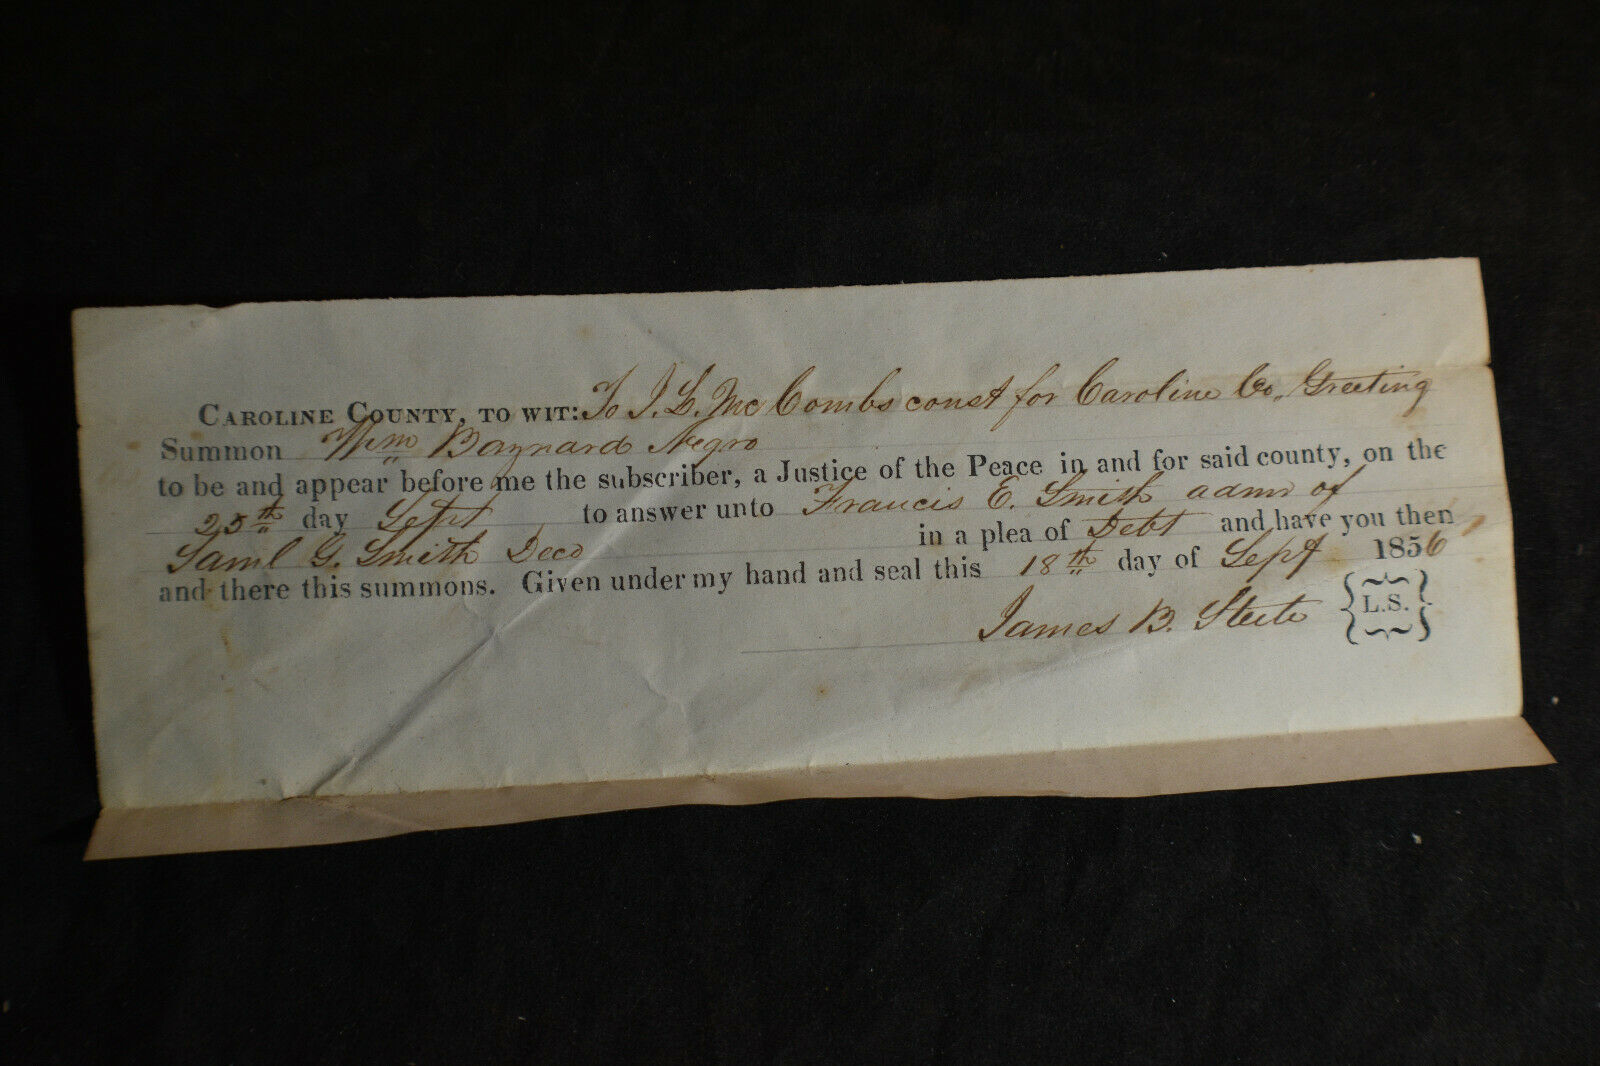 CAROLINE COUNTY, TO WIT: To J. L. McCombs const for Caroline Co, Greeting
Summon Wm Baynard Negro
to be and appear before me the subscriber, a Justice of the Peace in and for said county, on the
25th day Sept to answer unto Francis E. Smith admr of
Saml G. Smith Decd in a plea of Debt and have you then
and there this summons. Given under my hand and seal this 18th day of Sept 1856
James B. Steele L.S.